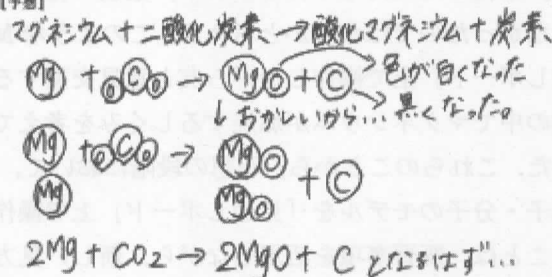 [予想]
マグネシウム+二酸化炭素→酸化マグネシウム+炭素
Mg + O C O → Mg O + C 色が白くなった
黒くなった。
↓おかしいから…
Mg + O C O → Mg O + C
Mg Mg O
2Mg + CO2 → 2MgO + C となるはず…